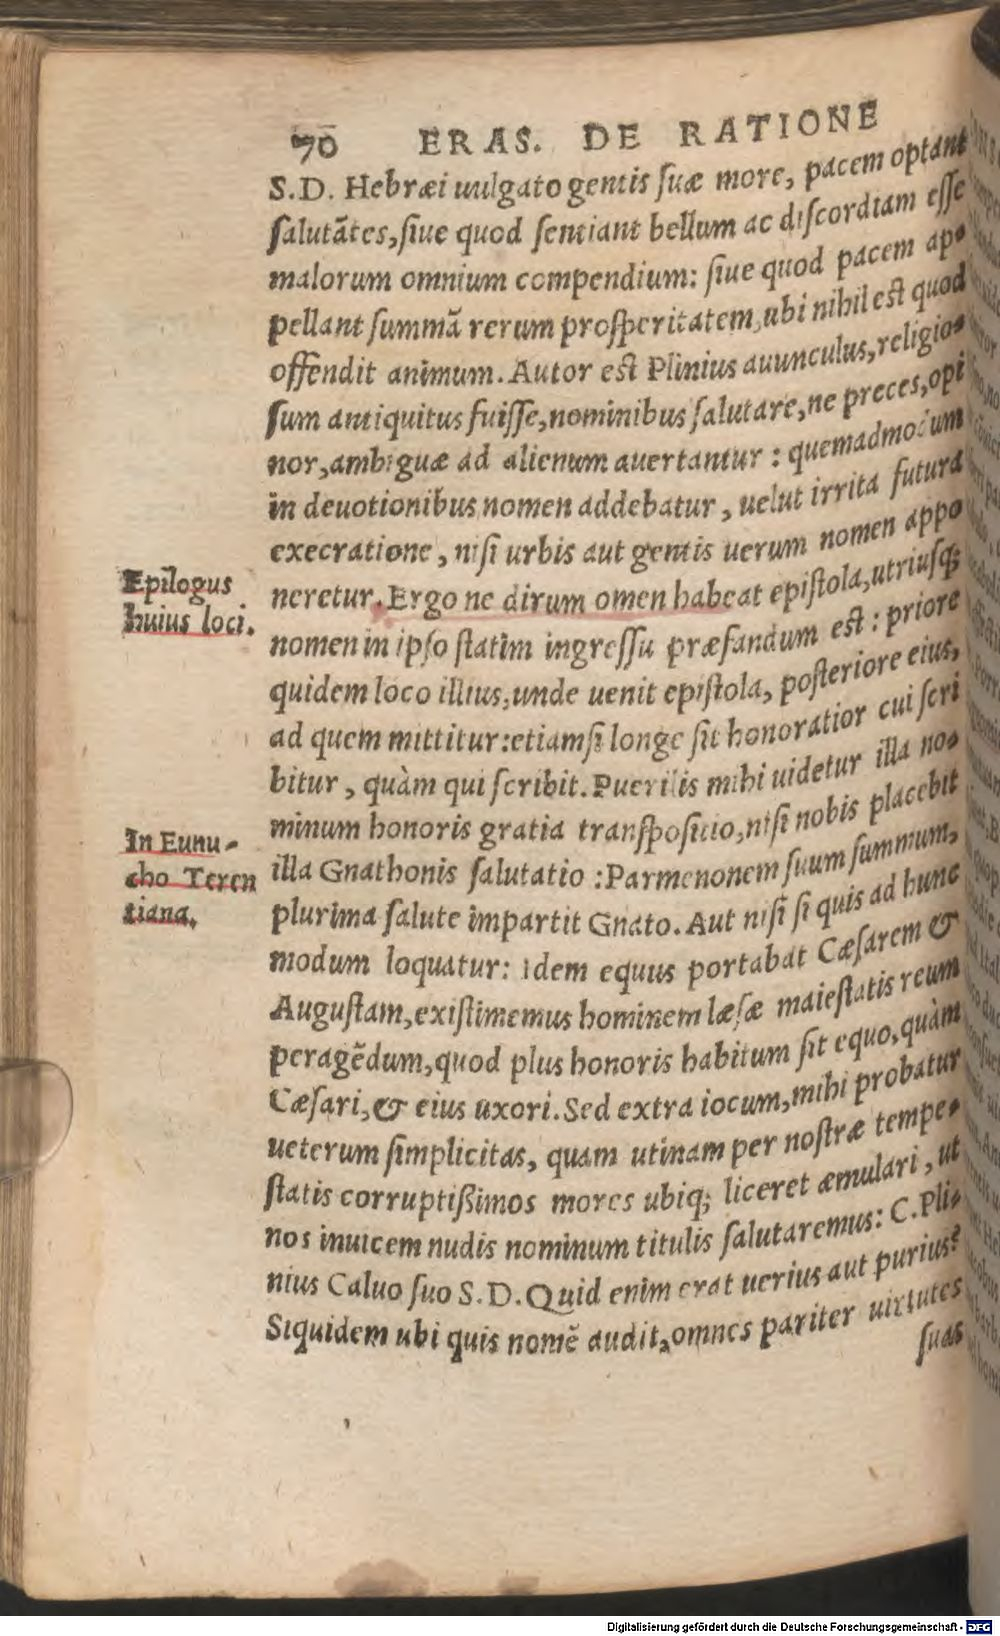 70 ERAS. DE RATIONE
S.D. Hebræi uulgato gentis ſuæ more, pacem optant
ſalutātes, ſiue quod ſentiant bellum ac diſcordiam eſſe
malorum omnium compendium: ſiue quod pacem ap-
pellant ſummā rerum proſperitatem, ubi nihil eſt quod
offendit animum. Autor eſt Plinius auunculus, religio-
ſum antiquitus fuiſſe, nominibus ſalutare, ne preces, opi
nor, ambiguæ ad alienum auertantur : quemadmodum
in deuotionibus nomen addebatur, uelut irrita futura
execratione, niſi urbis aut gentis uerum nomen appo
neretur. Ergo ne dirum omen habeat epiſtola, utriuſq;
nomen in ipſo ſtatim ingreſſu præfandum eſt : priore
quidem loco illius, unde uenit epiſtola, poſteriore eius,
ad quem mittitur: etiamſi longe ſit honoratior cui ſcri
bitur, quàm qui ſcribit. Puerilis mihi uidetur illa no-
minum honoris gratia tranſpoſitio, niſi nobis placebit
illa Gnathonis ſalutatio : Parmenonem ſuum ſummum,
plurima ſalute impartit Gnato. Aut niſi ſi quis ad hunc
modum loquatur: idem equus portabat Cæſarem &
Auguſtam, exiſtimemus hominem læſæ maieſtatis reum
peragēdum, quod plus honoris habitum ſit equo, quàm
Cæſari, & eius uxori. Sed extra iocum, mihi probatur
ueterum ſimplicitas, quam utinam per noſtræ tempe-
ſtatis corruptißimos mores ubiq; liceret æmulari, ut
nos inuicem nudis nominum titulis ſalutaremus: C. Pli-
nius Caluo ſuo S.D. Quid enim erat uerius aut purius?
Siquidem ubi quis nomē audit, omnes pariter uirtutes
ſuas
Epilogus
huius loci.
In Eunu-
cho Teren
tiana.
Digitalisierung gefördert durch die Deutsche Forschungsgemeinschaft - DFG